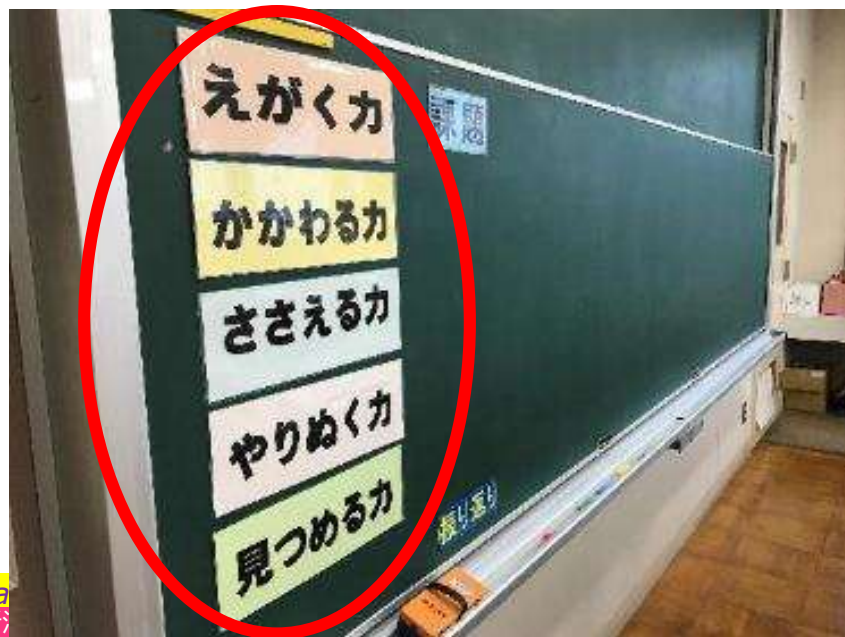 えがく力
かかわる力
ささえる力
やりぬく力
見つめる力
課題
振り返り